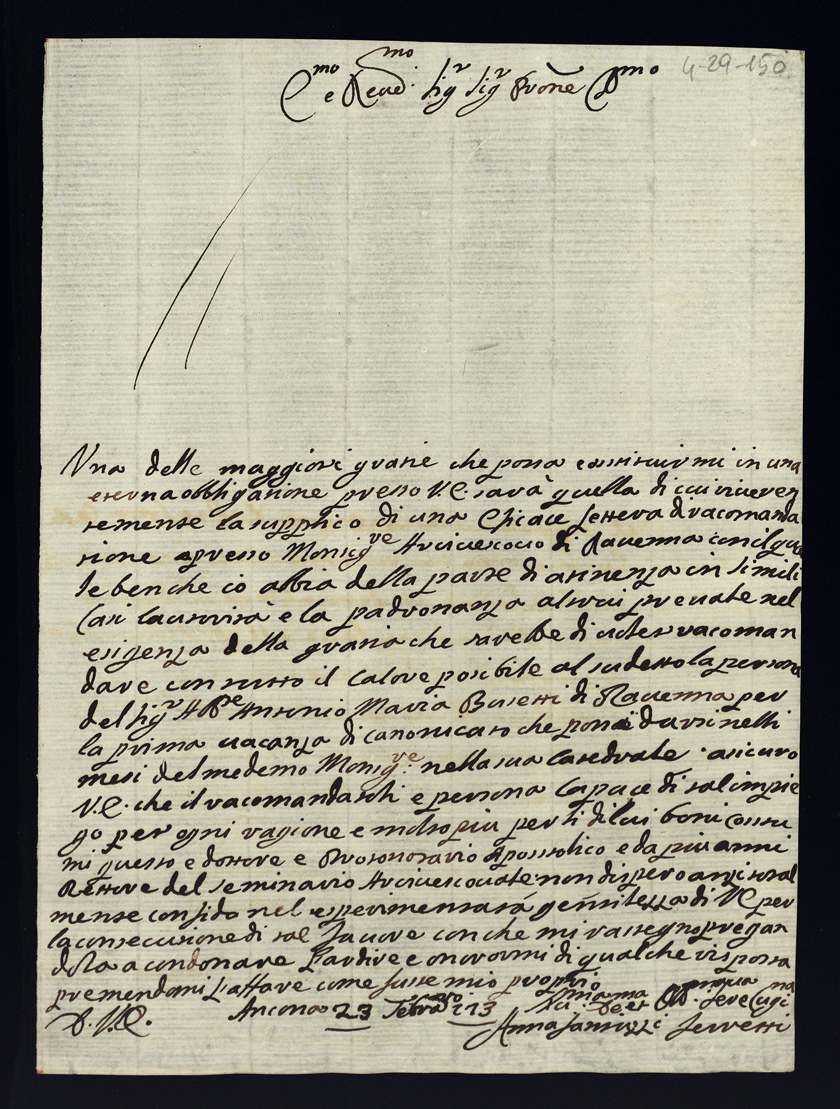 4-29-150
E.mo e Reud.mo Sig.r Sig.r Prone
Una delle maggiori grazie che possa costituirmi in una
eterna obbligatione presso V.E. sarà quella di cui riueren
temente la supplico di una eficace lettera di racomanda
tione apresso Monsig.re Arciuescouo di Rauenna con il qua
le ben che io abbia della parte di atinenza in simili
casi la seruitù e la padronanza altrui preuale nel
esigenza della grazia che sarebbe di racoman
dare con tutto il calore posibile al sudetto la persona
del Sig.r Abb.e Antonio Maria Busetti di Rauenna per
la prima uacanza di canonicato che possa darsi nelli
mesi del medemo Monsig.re nella sua catedrale asicuro
V.E. che il racomandatoli e persona capace di tal impie
go per ogni ragione e molto piu per li di lui boni costu
mi questo e dottore e Protonotario Apostolico e da piu anni
Rettore del seminario Arciuescouale non dispero anzi total
mente confido nel esperimentata gentilezza di V.E. per
la consecutione di tal fauore con che mi rassegno pregan
dola a condonare l'ardire e onorarmi di qualche risposta
premendomi l'affare come fusse mio proprio
D.V.E.
Ancona 23
Anna Ferretti